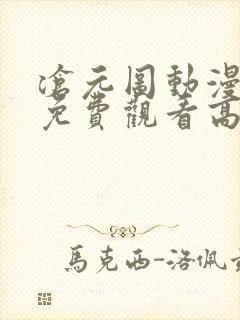 滄元圖動漫
免費觀看高
馬克西-洛佩